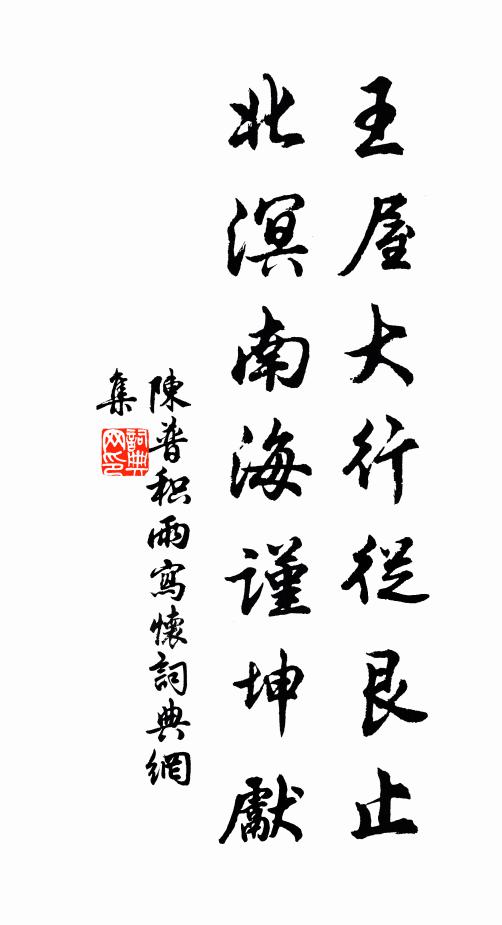 王屋大行從艮止
北溟南海謹坤獻
陳普积雨寫懷詞典網
集
詞典网印